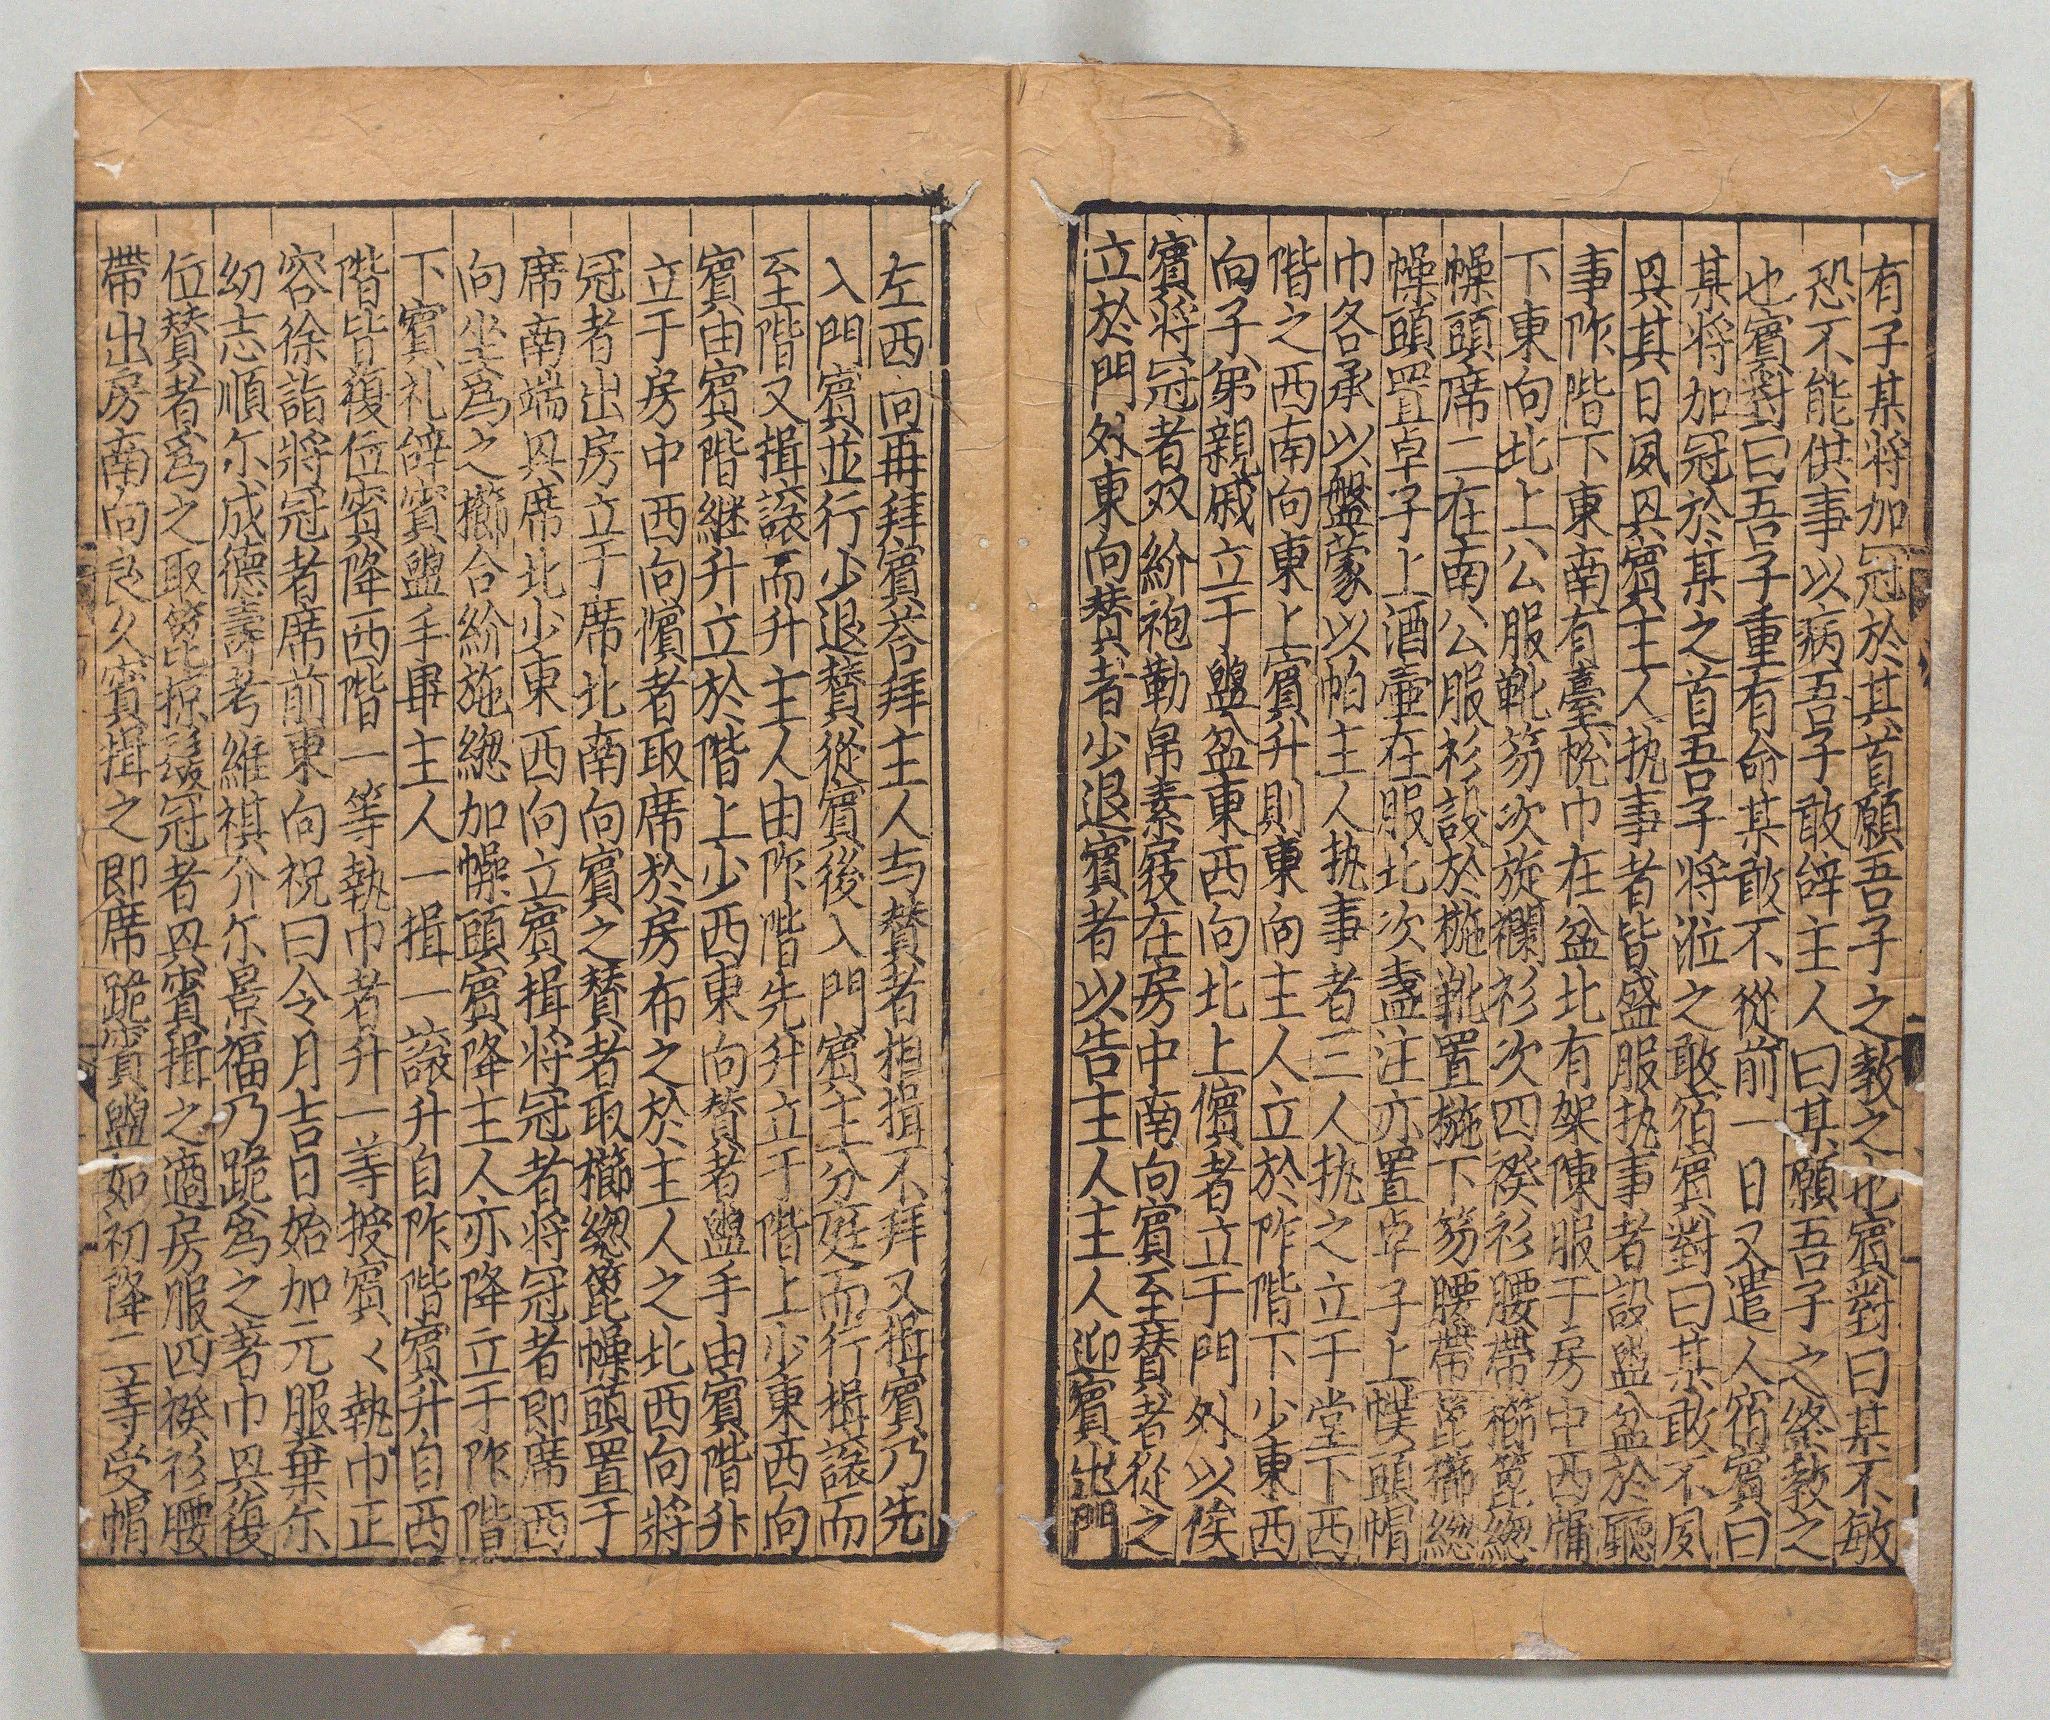 有子某將加冠於其首願吾子之敎之也賓對曰某不敏
恐不能供事以病吾子敢辝主人曰某願吾子之終敎之
也賓對曰吾子重有命某敢不從前一日又遣人宿賓曰
某將加冠於某之首吾子將涖之敢宿賓對曰某敢不夙
具其日夙具賓主人执事者皆盛服执事者設盥盆於廳
事阼階下東南有臺帨巾在盆北有架陳服于房中西牖
下東向北上公服靴笏次旋襴衫次四䙆衫腰帶櫛篦緫
幧頭席二在南公服衫設於椸靴置椸下笏腰帶篦櫛緫
幧頭置卓子上酒壷在服北次盞注亦置卓子上幞頭帽
巾各承以盤蒙以帕主人执事者三人执之立于堂下西
階之西南向東上賓升則東向主人立於阼階下少東西
向子弟親戚立于盥盆東西向北上儐者立于門外以俟
賓將冠者双紒袍勒帛素屐在房中南向賓至賛者從之
立於門外東向賛者少退賓者以告主人主人迎賓出門
左西向再拜賓荅拜主人与賛者相揖不拜又揖賓乃先
入門賓並行少退賛從賓後入門賓主分庭而行揖讓而
至階又揖讓而升主人由阼階先升立于階上少東西向
賓由賓階継升立於階上少西東向賛者盥手由賓階升
立于房中西向儐者取席於房布之於主人之北西向將
冠者出房立于席北南向賓之賛者取櫛緫篦幧頭置于
席南端具席北少東西向立賓揖將冠者將冠者即席西
向坐爲之櫛合紒施緫加幧頭賓降主人亦降立于阼階
下賓礼辝賓盥手畢主人一揖一讓升自阼階賓升自西
階皆復位賓降西階一等執巾者升一等授賓〻執巾正
容徐詣將冠者席前東向祝曰令月吉日始加元服棄尓
幼志順尓成德壽考維祺介尓景福乃跪爲之著巾具復
位賛者爲之取篦掠髮冠者具賓揖之適房服四䙆衫腰
帶出房南向良久賓揖之即席跪賓盥如初降二等受帽